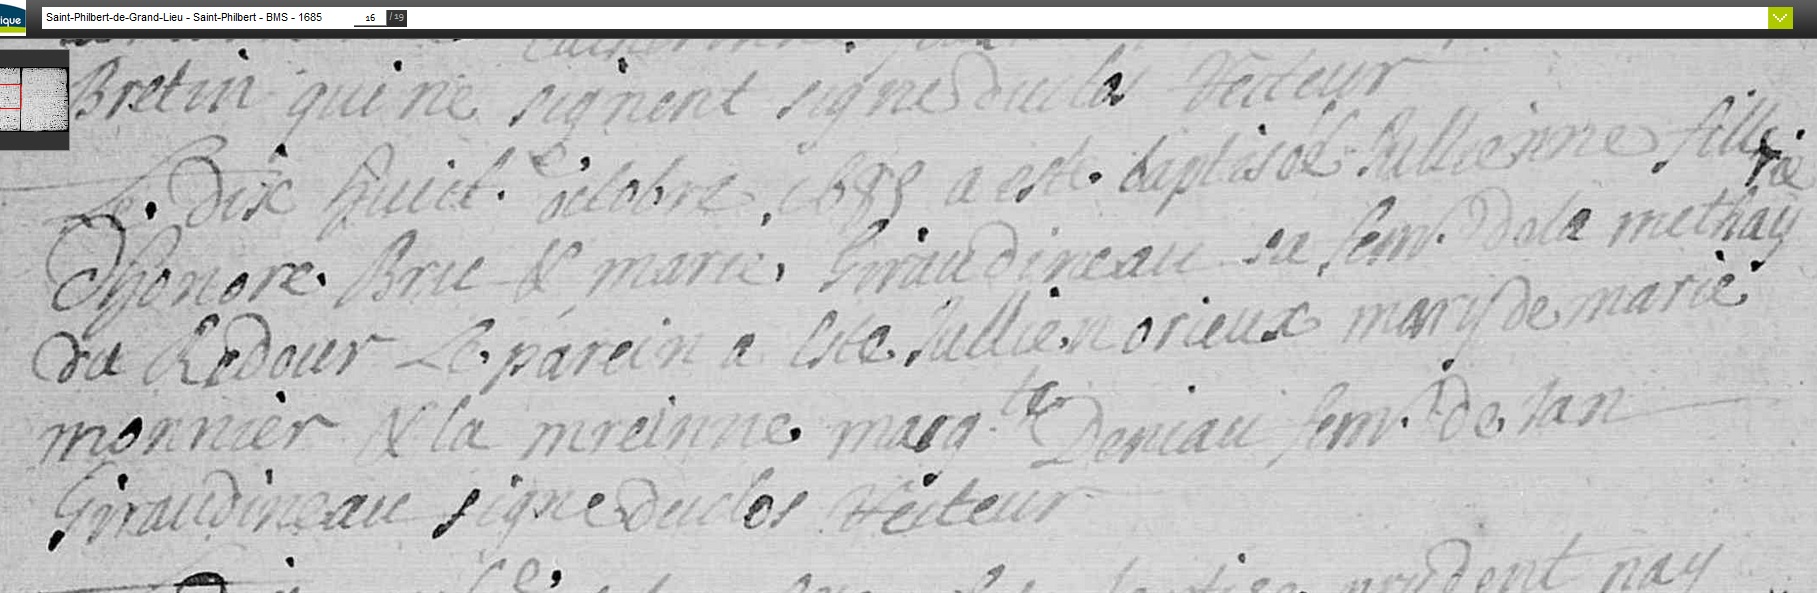 ique
Saint-Philbert-de-Grand-Lieu - Saint-Philbert - BMS - 1685 16 /19
Bretin qui ne signent signe duclos Recteur
Le dix huict.e octobre 1685 a esté baptisée Jullienne fille
d'honoré Bru & marie Giraudineau sa fem. de la methayrie
du Redour Le parein a Esté Jullien orieux mary de marie
monnier & la mreinne marg.te Deniau fem. de Jan
Giraudineau signe duclos Recteur